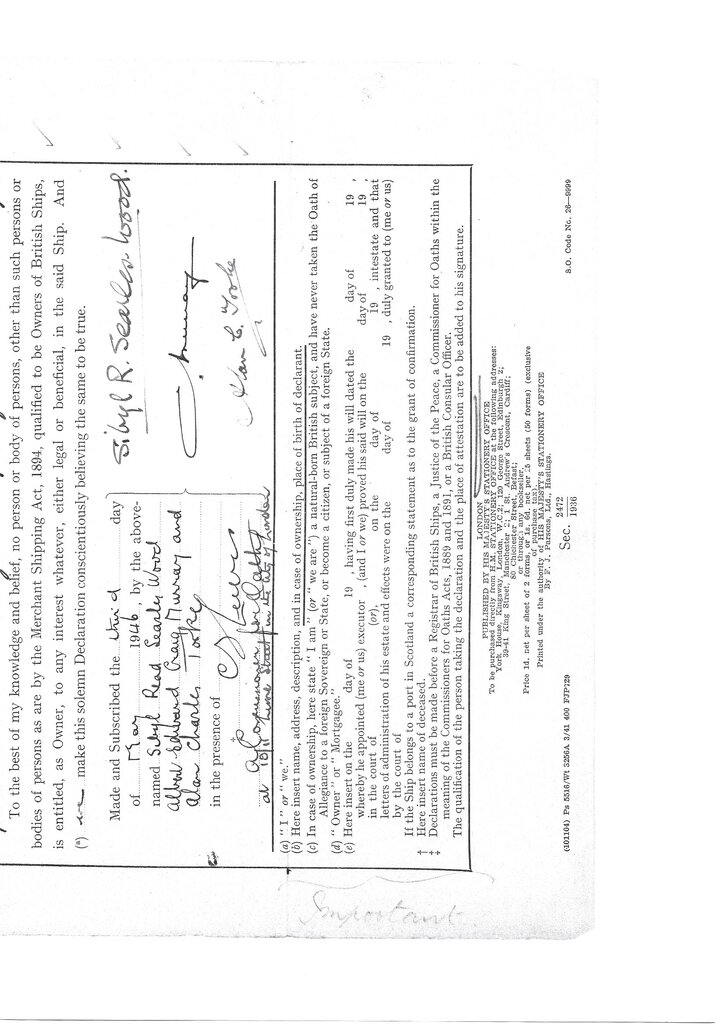 To the best of my knowledge and belief, no person or body of persons, other than such persons or
bodies of persons as are by the Merchant Shipping Act, 1894, qualified to be Owners of British Ships,
is entitled, as Owner, to any interest whatever, either legal or beneficial, in the said Ship. And
(a) we make this solemn Declaration conscientiously believing the same to be true.
Made and Subscribed the third day
of May 1946, by the above-
named Sibyl Read Searles Wood
Albert Edward Craig Murray and
Alan Charles Tooke
in the presence of
A Commissioner for Oaths
at 10/11 Lime Street in the City of London
Sibyl R. Searles Wood.
Murray
Alan C. Tooke
(a) "I" or "we."
(b) Here insert name, address, description, and in case of ownership, place of birth of declarant.
(c) In case of ownership, here state "I am" (or "we are") a natural-born British subject, and have never taken the Oath of
Allegiance to a foreign Sovereign or State, or become a citizen, or subject of a foreign State.
(d) "Owner" or "Mortgagee."
(e) Here insert on the day of 19 , having first duly made his will dated the day of 19 ,
whereby he appointed (me or us) executor , (and I or we) proved his said will on the day of 19 ,
in the court of (or), on the day of 19 , intestate and that
letters of administration of his estate and effects were on the day of 19 , duly granted to (me or us)
by the court of
If the Ship belongs to a port in Scotland a corresponding statement as to the grant of confirmation.
† Here insert name of deceased.
‡ Declarations must be made before a Registrar of British Ships, a Justice of the Peace, a Commissioner for Oaths within the
meaning of the Commissioners for Oaths Acts, 1889 and 1891, or a British Consular Officer.
The qualification of the person taking the declaration and the place of attestation are to be added to his signature.
Important
LONDON
PUBLISHED BY HIS MAJESTY'S STATIONERY OFFICE
To be purchased directly from H.M. STATIONERY OFFICE at the following addresses:
York House, Kingsway, London, W.C.2; 120 George Street, Edinburgh 2;
39-41 King Street, Manchester 2; 1 St. Andrew's Crescent, Cardiff;
80 Chichester Street, Belfast;
or through any bookseller.
Price 1d. net per sheet of 2 forms, or 1s. 6d. net per 25 sheets (50 forms) (exclusive
of purchase tax).
Printed under the authority of HIS MAJESTY'S STATIONERY OFFICE
By F. J. Parsons, Ltd., Hastings.
Sec. 2472
1936
(101104) Ps 5516/Wt 3256A 3/41 400 FJP129
S.O. Code No. 26—9999